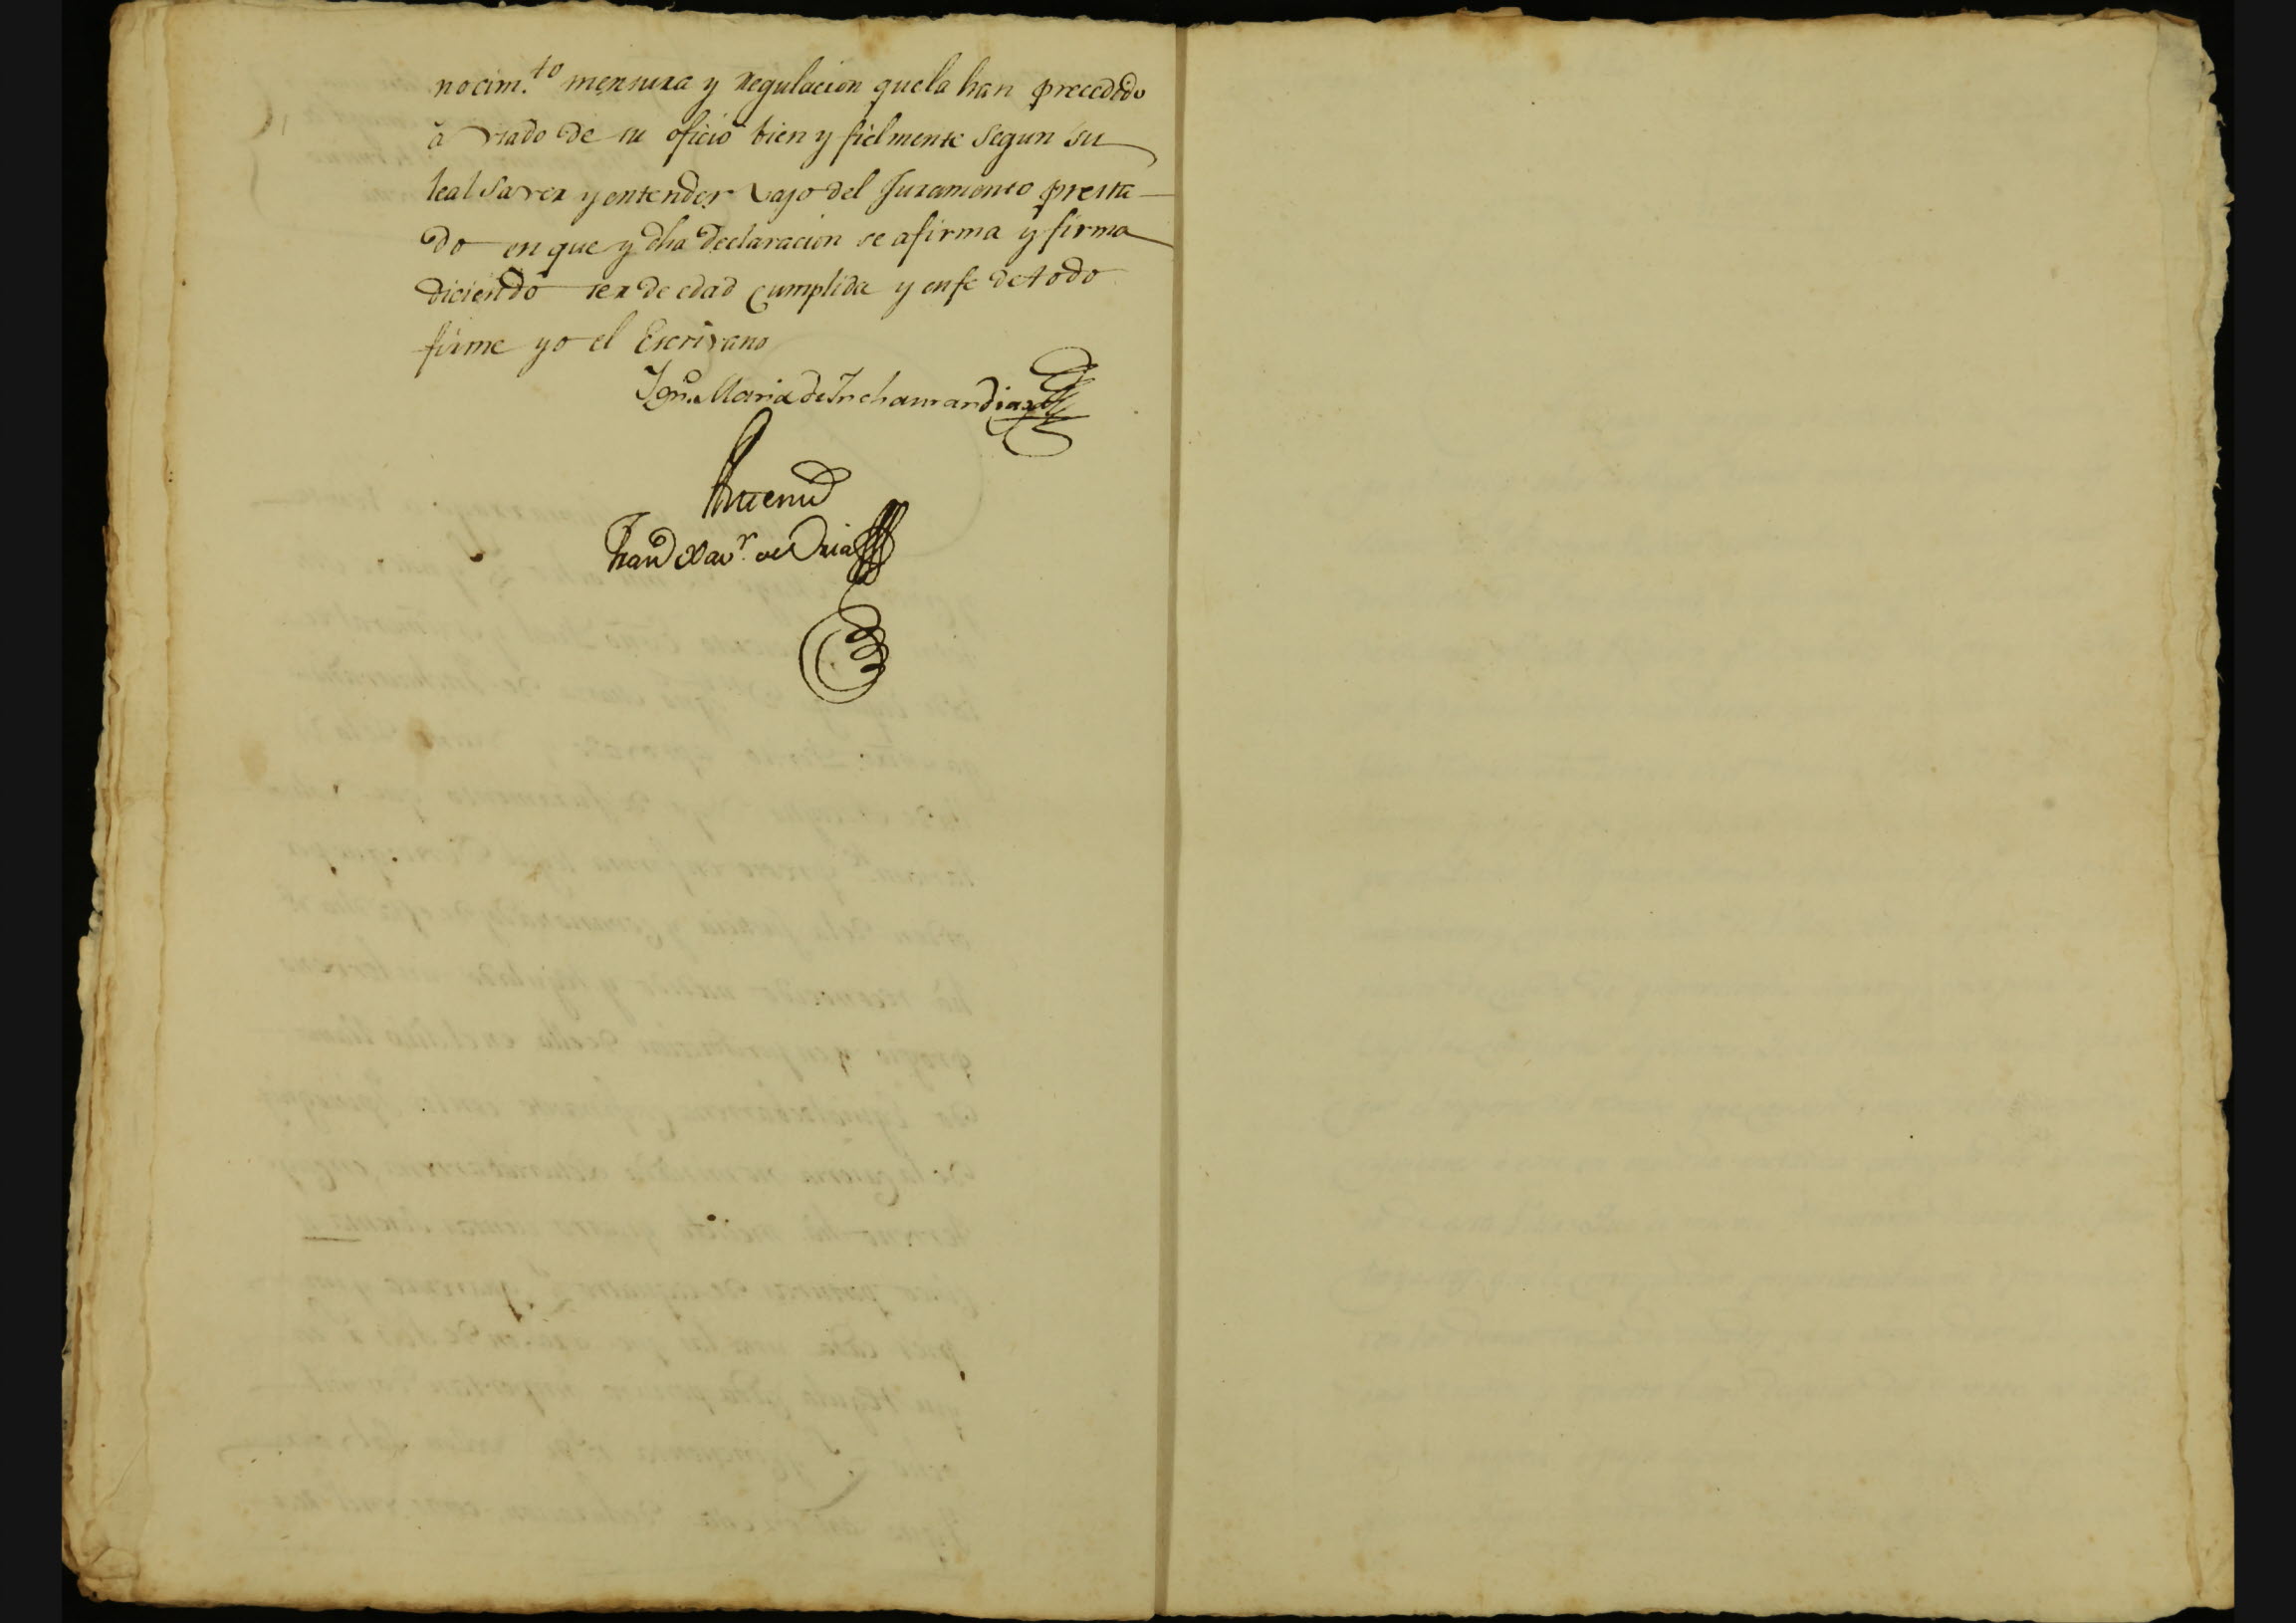 nocim.to mensura y Regulacion que la han precedido
â Vsado de su oficio bien y fielmente Segun su
leal Saver y entender Vajo del Juramento presta
do en que y dha Declaracion se afirma y firma
diciendo ser de edad Cumplida y en fe de todo
firme yo el Escrivano
Ign.o Maria de Inchaurandiaga
Antemi
Fran.co Xav.r de Oria